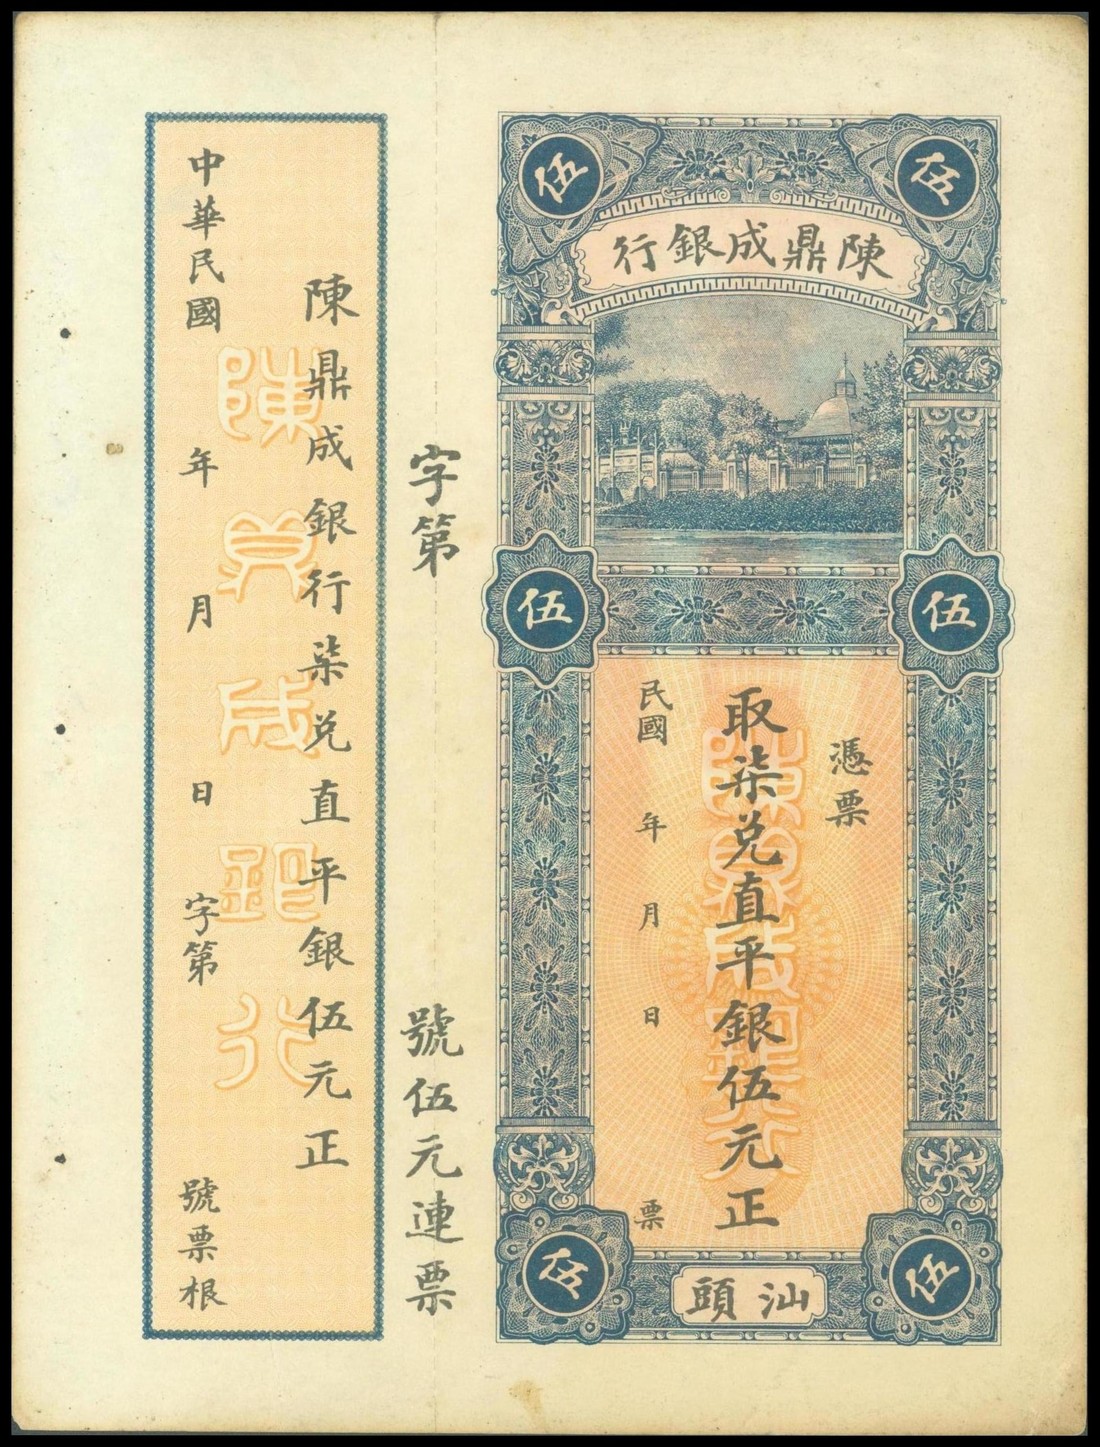 伍
伍
陳鼎成銀行
伍
伍
憑票
取柒兑直平銀伍元正
民國 年 月 日 票
伍
伍
汕頭
陳鼎成銀行
字第 號伍元連票
陳鼎成銀行柒兑直平銀伍元正
陳鼎成銀行
中華民國 年 月 日 字第 號票根